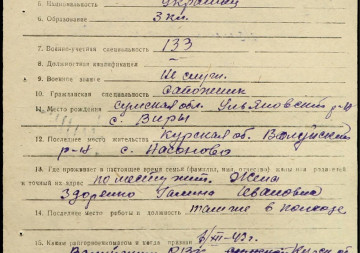 6. Национальность украинец
6. Образование 3 кл.
7. Военно-учетная специальность 133
8. Должностная квалификация —
9. Военное звание
10. Гражданская специальность сапожник
11. Место рождения Сумская обл. Ульяновский р-н
с. Виры
12. Последнее место жительства Курская об.
р-н с.
14. Где проживает в настоящее время семья (фамилия, имя
и точный их адрес по месту жит. Жена
Здоренко Галина Ивановна
14. Последнее место работы и должность там же в колхозе
15. Каким райгорвоенкоматом и когда призван XII-43г.